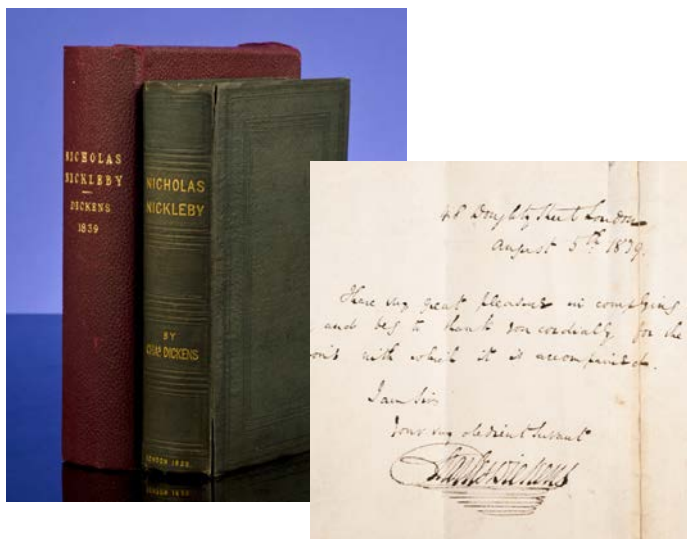 NICHOLAS
NICKLEBY
DICKENS
1839
NICHOLAS
NICKLEBY
BY
CHAS. DICKENS
48 Doughty Street London
August 5th 1839.
I have very great pleasure in complying
and beg to thank you cordially for the
with which it is accompanied.
I am Sir
Your very obedient Servant
Charles Dickens